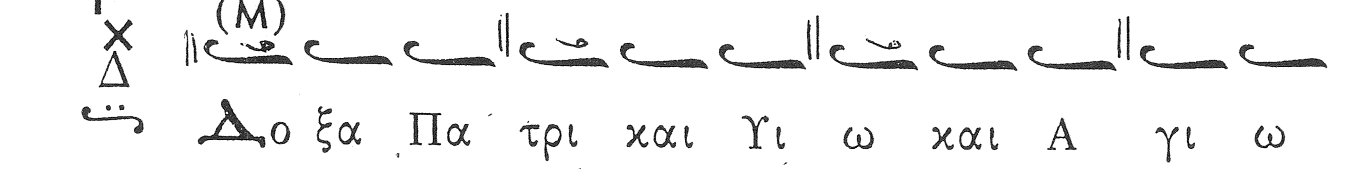 (Μ)
χ
Δ
Δο ξα Πα τρι και Υι ω και Α γι ω